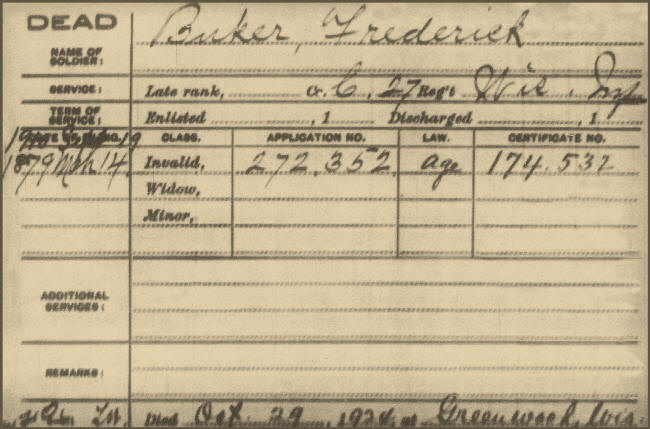 DEAD
NAME OF SOLDIER: Buker, Frederick
SERVICE: Late rank, Co. C, 27 Reg't Wis. Inf
TERM OF SERVICE: Enlisted , 1 Discharged , 1
CLASS. APPLICATION NO. LAW. CERTIFICATE NO.
1879 Mch 14. Invalid, 272.352 age 174.532
Widow,
Minor,
ADDITIONAL SERVICES:
REMARKS:
Died Oct. 29, 1924, at Greenwood, Wis.